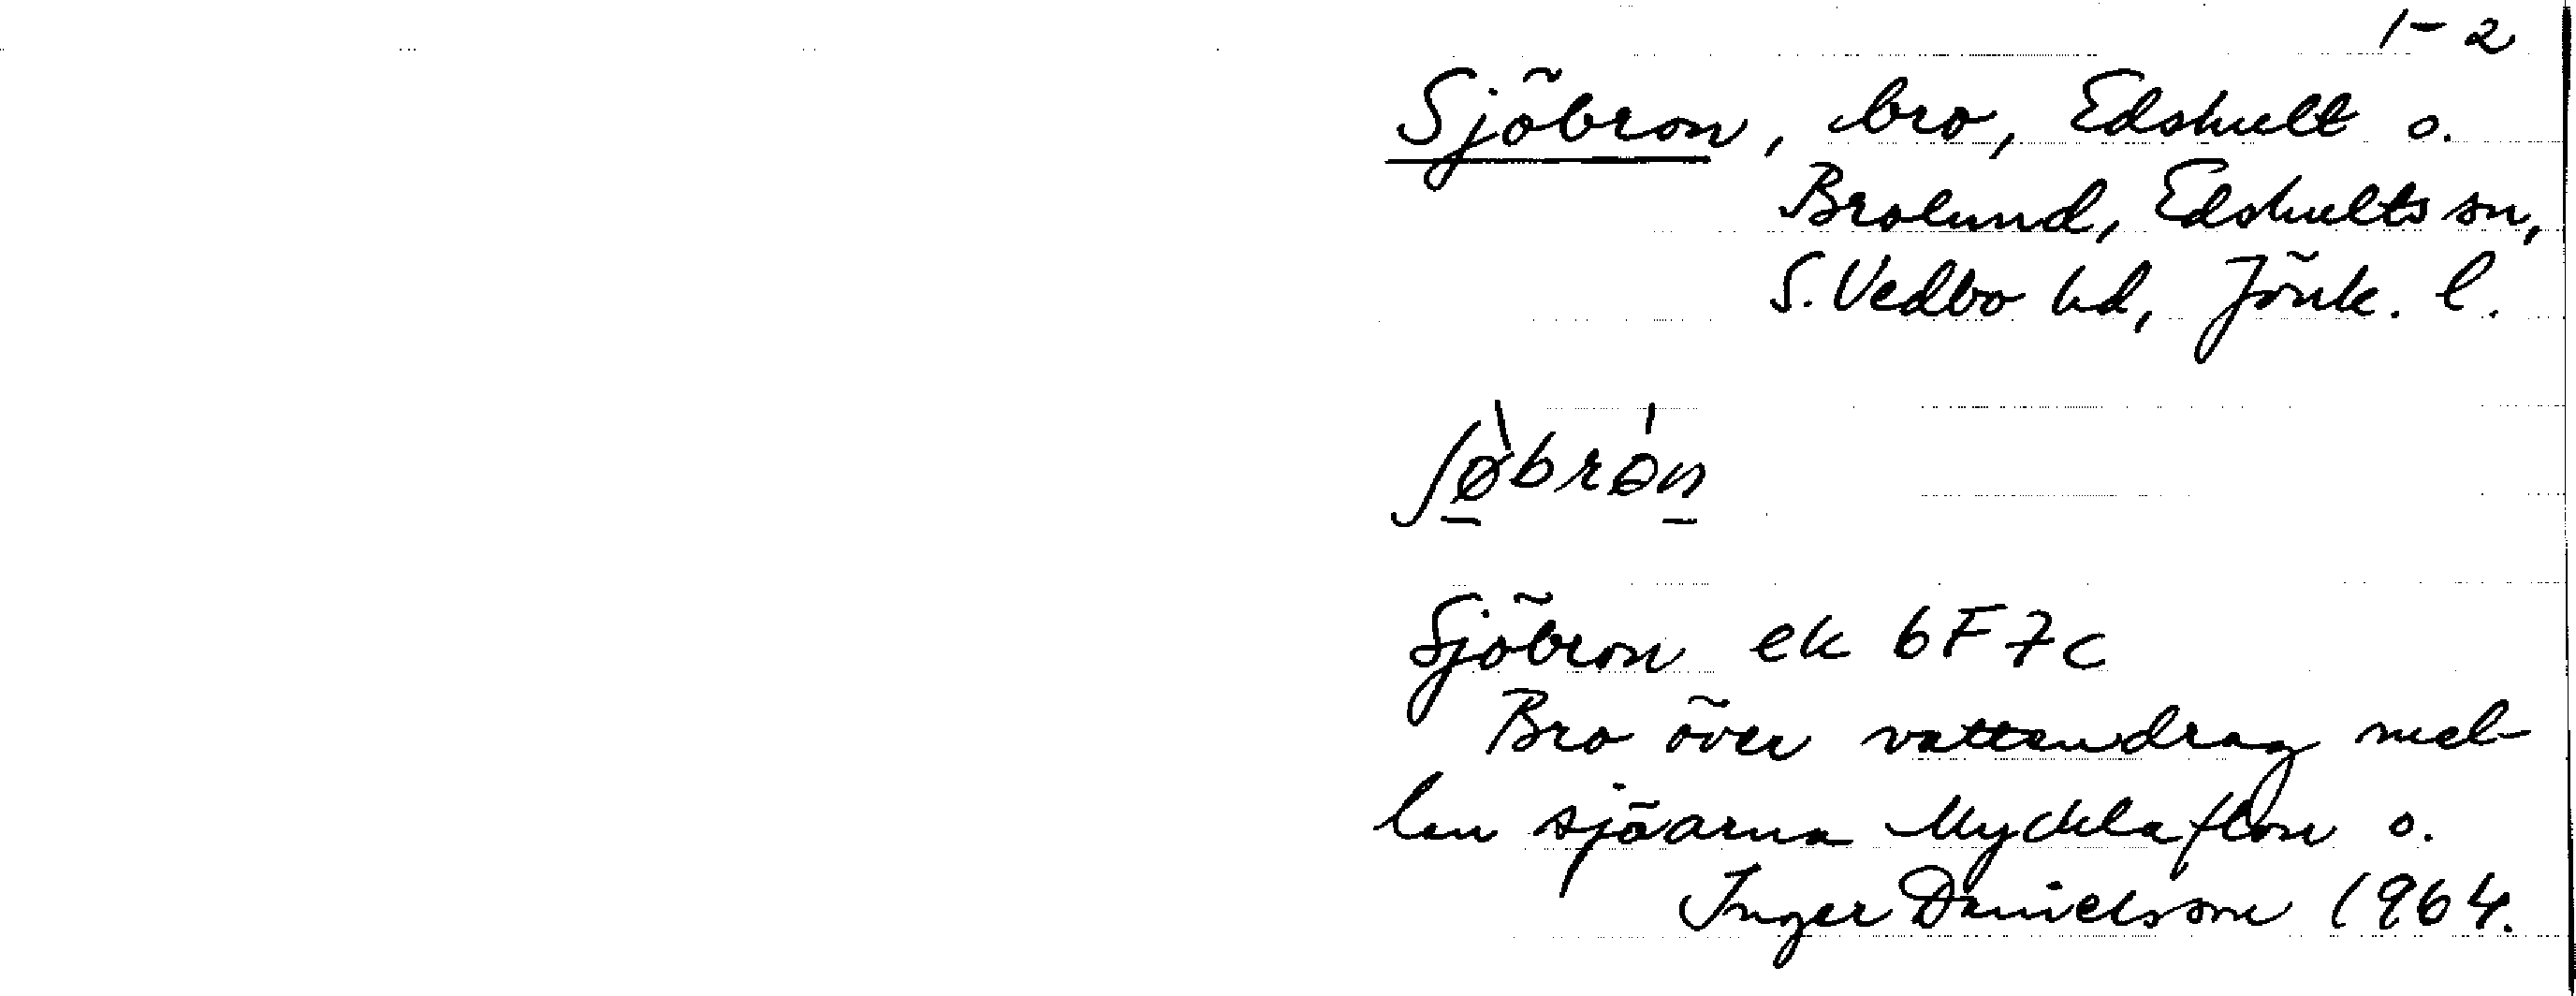 1-2
Sjöbron, bro, Edshult o.
Brolund, Edshults sn,
S. Vedbo hd, Jönk. l.
ʃø̠̀brɵ́n̠
Sjöbron ek 6F 7c
Bro över vattendrag mel-
lan sjöarna Mycklaflon o.
Inger Danielsson 1964.